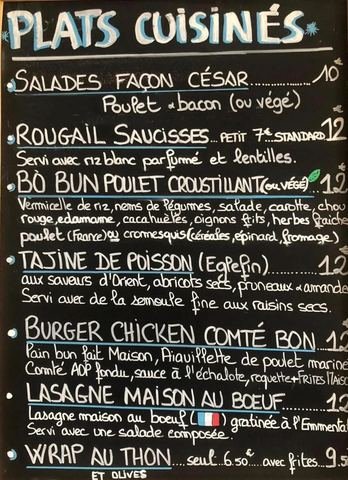 PLATS CUISINÉS
SALADES FAÇON CÉSAR............10€
Poulet & bacon (ou végé)
ROUGAIL SAUCISSES...PETIT 7€ STANDARD 12
Servi avec riz blanc parfumé et lentilles.
BÒ BUN POULET CROUSTILLANT (ou VÉGÉ) 12
Vermicelle de riz, nems de légumes, salade, carotte, chou
rouge, edamame, cacahuètes, oignons frits, herbes fraîche
poulet (France) ou cromesquis (céréales, épinard, fromage).
TAJINE DE POISSON (Eglefin) 12
aux saveurs d'Orient, abricots secs, pruneaux & amande
Servi avec de la semoule fine aux raisins secs.
BURGER CHICKEN COMTÉ BON....12
Pain bun fait Maison, Aiguillette de poulet mariné
Comté AOP fondu, sauce à l'échalote, roquette + FRITES MAISO
LASAGNE MAISON AU BOEUF....12
Lasagne maison au boeuf () gratinée à l'Emmental
Servi avec une salade composée.
WRAP AU THON ....seul..6.50€.. avec frites...9.5
ET OLIVES